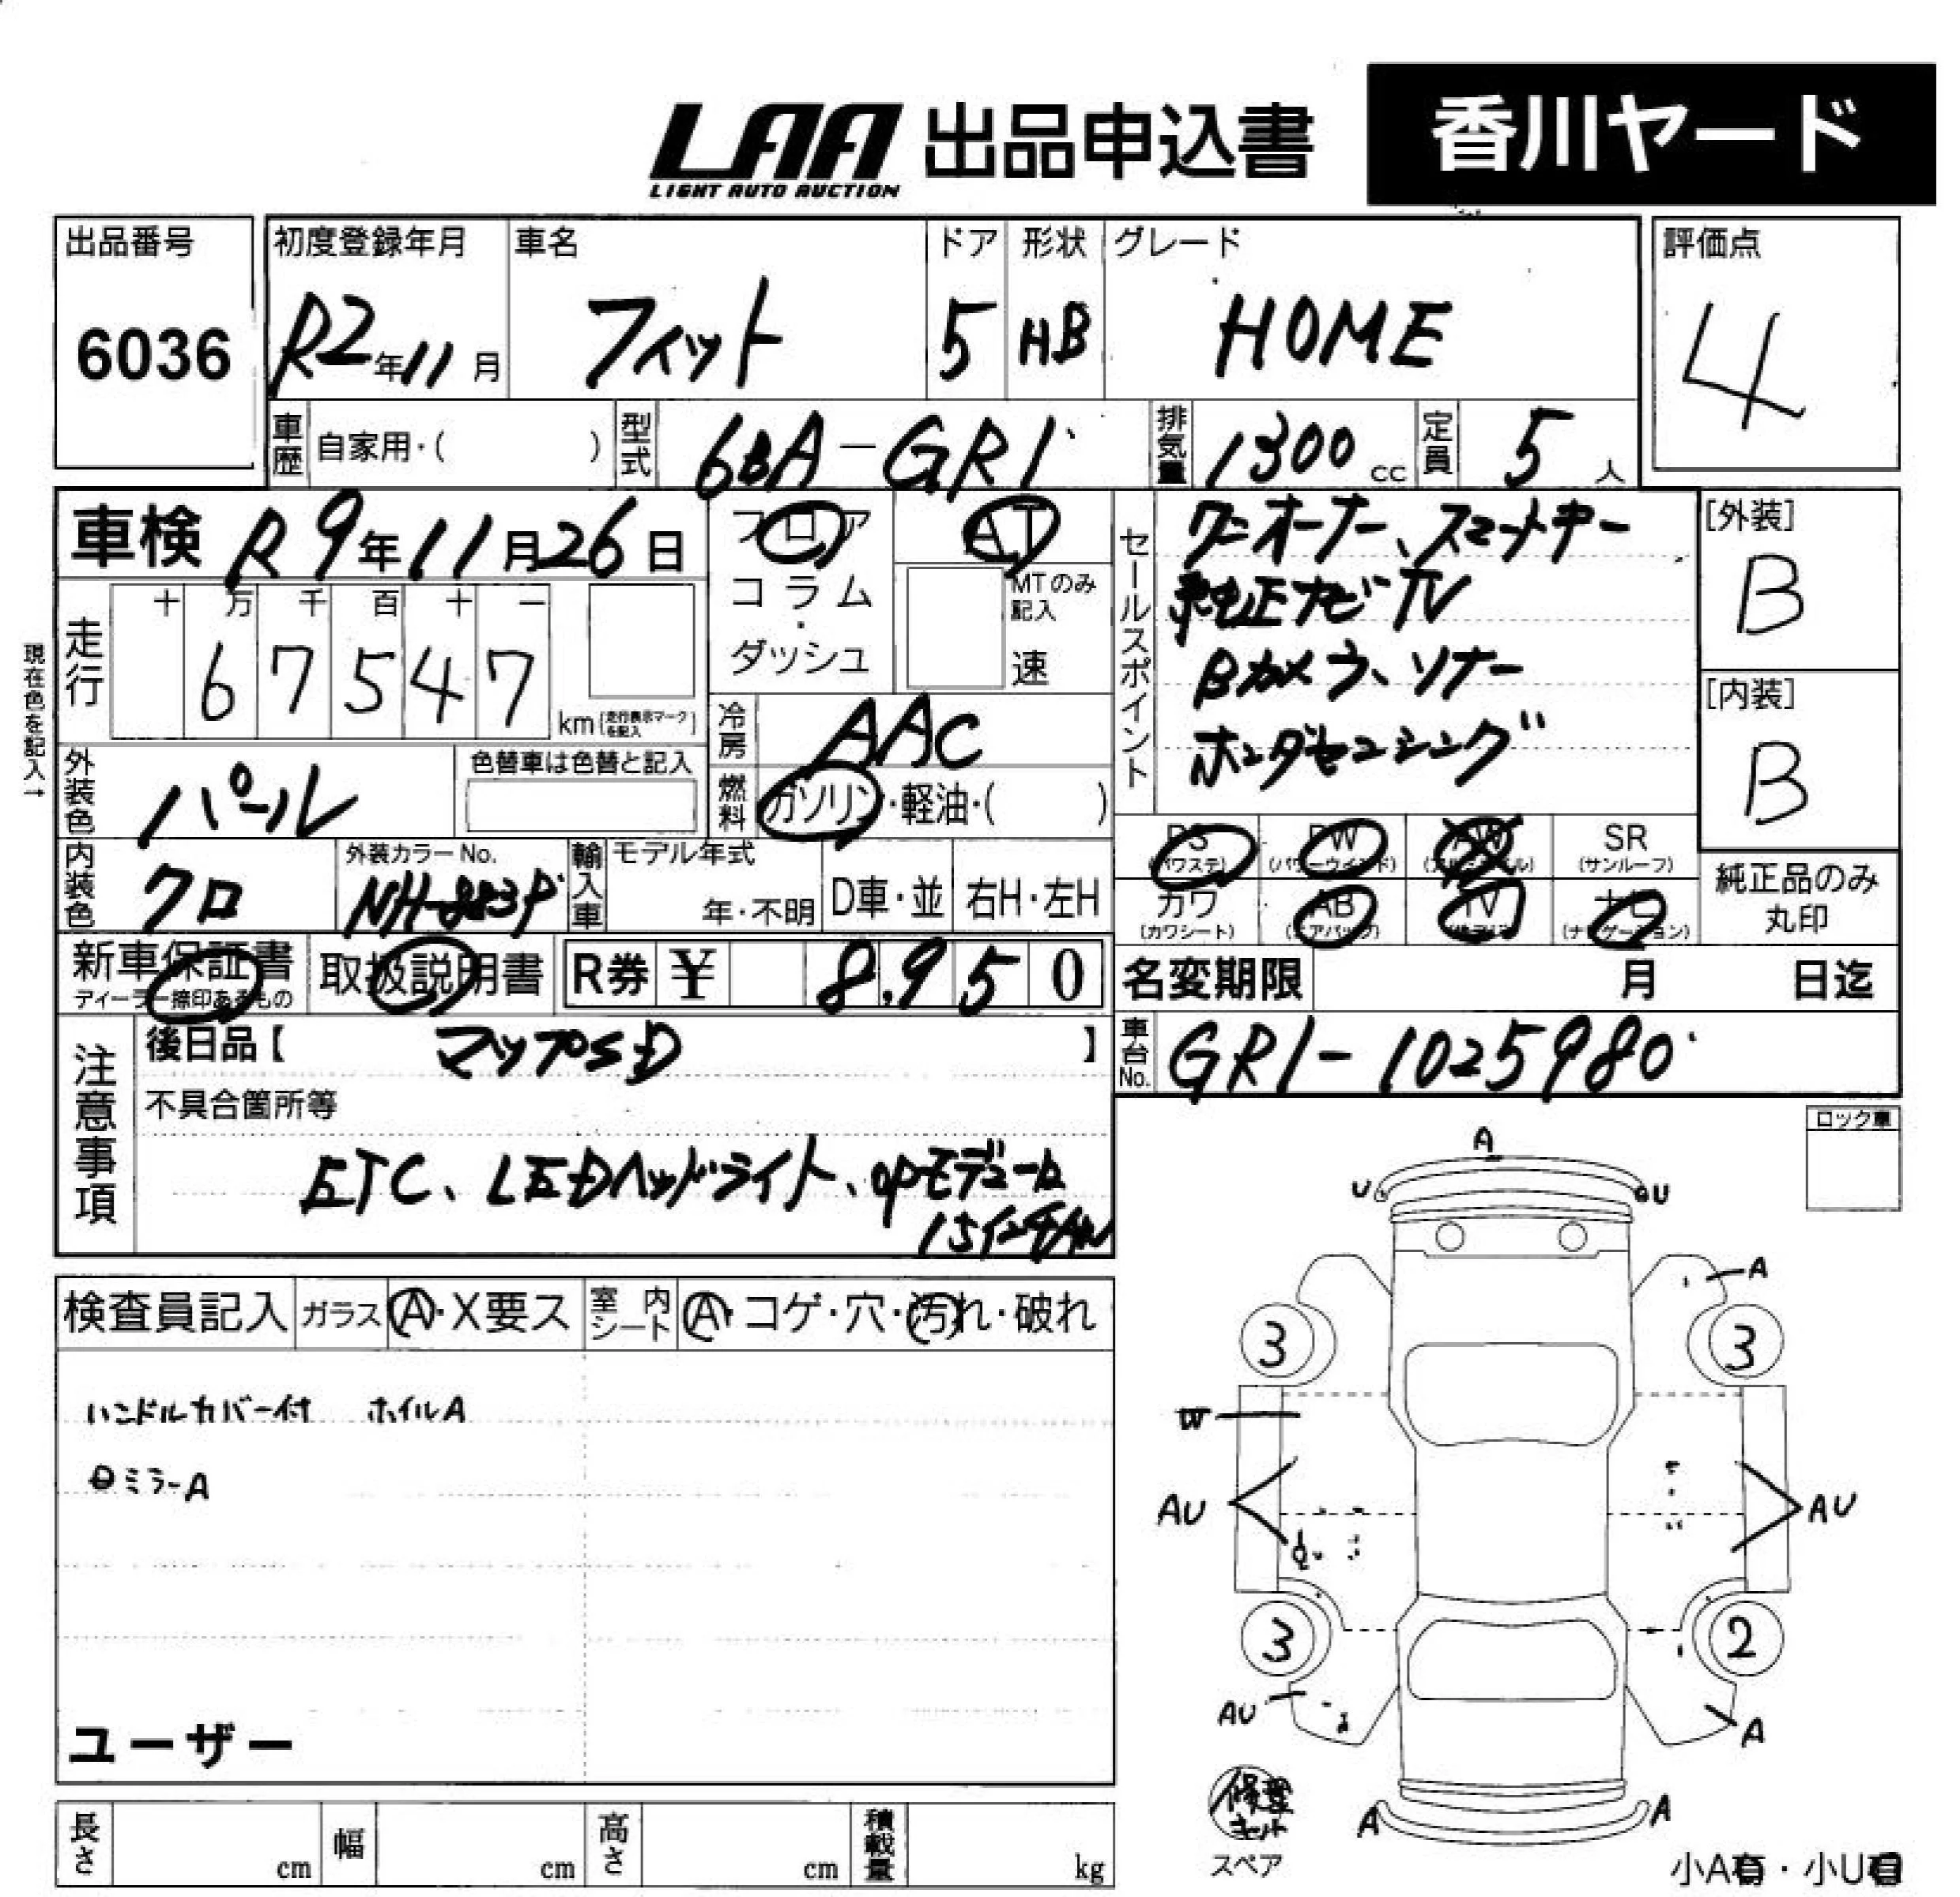 LAA 出品申込書 香川ヤード
LIGHT AUTO AUCTION
出品番号 初度登録年月 車名 ドア 形状 グレード 評価点
6036 R2年11月 フィット 5 HB HOME 4
車歴 自家用・( ) 型式 6BA-GR1 排気量 1300cc 定員 5人
車検 R9年11月26日 フロア AT セールスポイント ワンオーナー、スマートキー [外装]
コラム・ MTのみ記入 純正ナビTV B
走行 十万千百十一 ダッシュ 速 Bカメラ、ソナー [内装]
現在色を記入→ 67547 km(走行表示マークを記入) 冷房 AAC ホンダセンシング B
外装色 パール 色替車は色替と記入 燃料 ガソリン・軽油・( )
PS(パワステ) PW(パワーウインド) AW(アルミホイル) SR(サンルーフ) 純正品のみ丸印
内装色 クロ 外装カラーNo. NH-883P 輸入車 モデル年式 年・不明 D車・並 右H・左H
カワ(カワシート) AB(エアバック) TV ナビ(ナビゲーション)
新車保証書 ディーラー捺印あるもの 取扱説明書 R券 ¥ 8,950 名変期限 月 日迄
注意事項 後日品【 マップSD 】 車台No. GR1-1025980
不具合箇所等
ETC、LEDヘッドライト、OPモデューロ
15インチAW
ロック車
検査員記入 ガラス A・X要ス 室内シート A・コゲ・穴・汚れ・破れ
ハンドルカバー付 ホイルA
ミラーA
ユーザー
A
U U
A
3 3
W
AU AU
3 2
AU A
修理キット
スペア
A A
長さ cm 幅 cm 高さ cm 積載量 kg
小A有・小U有